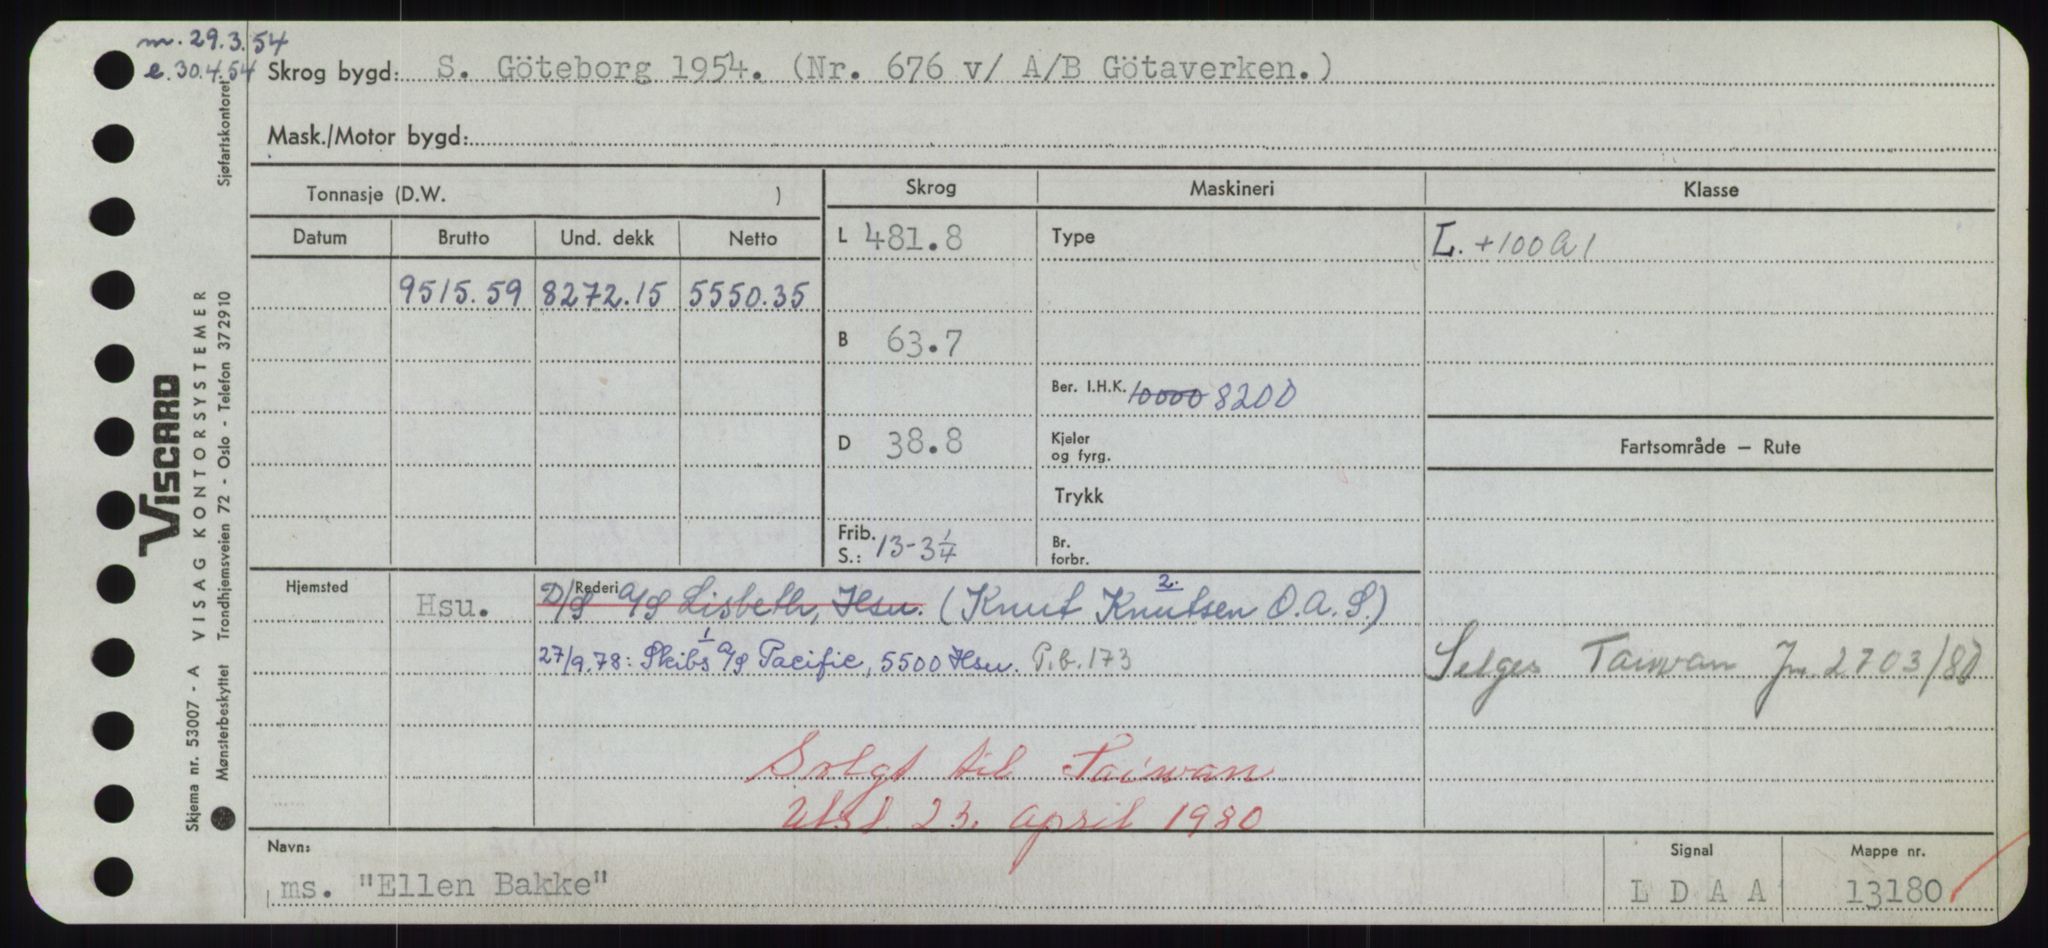 m. 29.3.54
e. 30.4.54
Skrog bygd: S. Göteborg 1954. (Nr. 676 v/ A/B Götaverken.)
Mask./Motor bygd:
Tonnasje (D.W. )
Skrog
Maskineri
Klasse
Datum Brutto Und. dekk Netto
L 481.8
Type
L. +100A1
9515.59 8272.15 5550.35
B 63.7
Ber. I.H.K. 10000 8200
D 38.8
Kjeler
og fyrg.
Fartsområde — Rute
Trykk
Frib.
S.: 13-3 1/4
Br.
forbr.
Hjemsted
Hsu.
Rederi
D/S A/S Lisbeth, Hsu. (Knut Knutsen O.A.S.) 2.
27/9.78: Skibs A/S Pacific, 5500 Hsu. P.b. 173
1
Selges Taiwan Jn. 2703/80
Solgt til Taiwan
Utsl. 23. april 1980
Navn:
ms. "Ellen Bakke"
Signal
L D A A
Mappe nr.
13180
Sjøfartskontoret
VISCARD
Skjema nr. 53007 - A VISAG KONTORSYSTEMER
Mønsterbeskyttet Trondhjemsveien 72 - Oslo - Telefon 372910